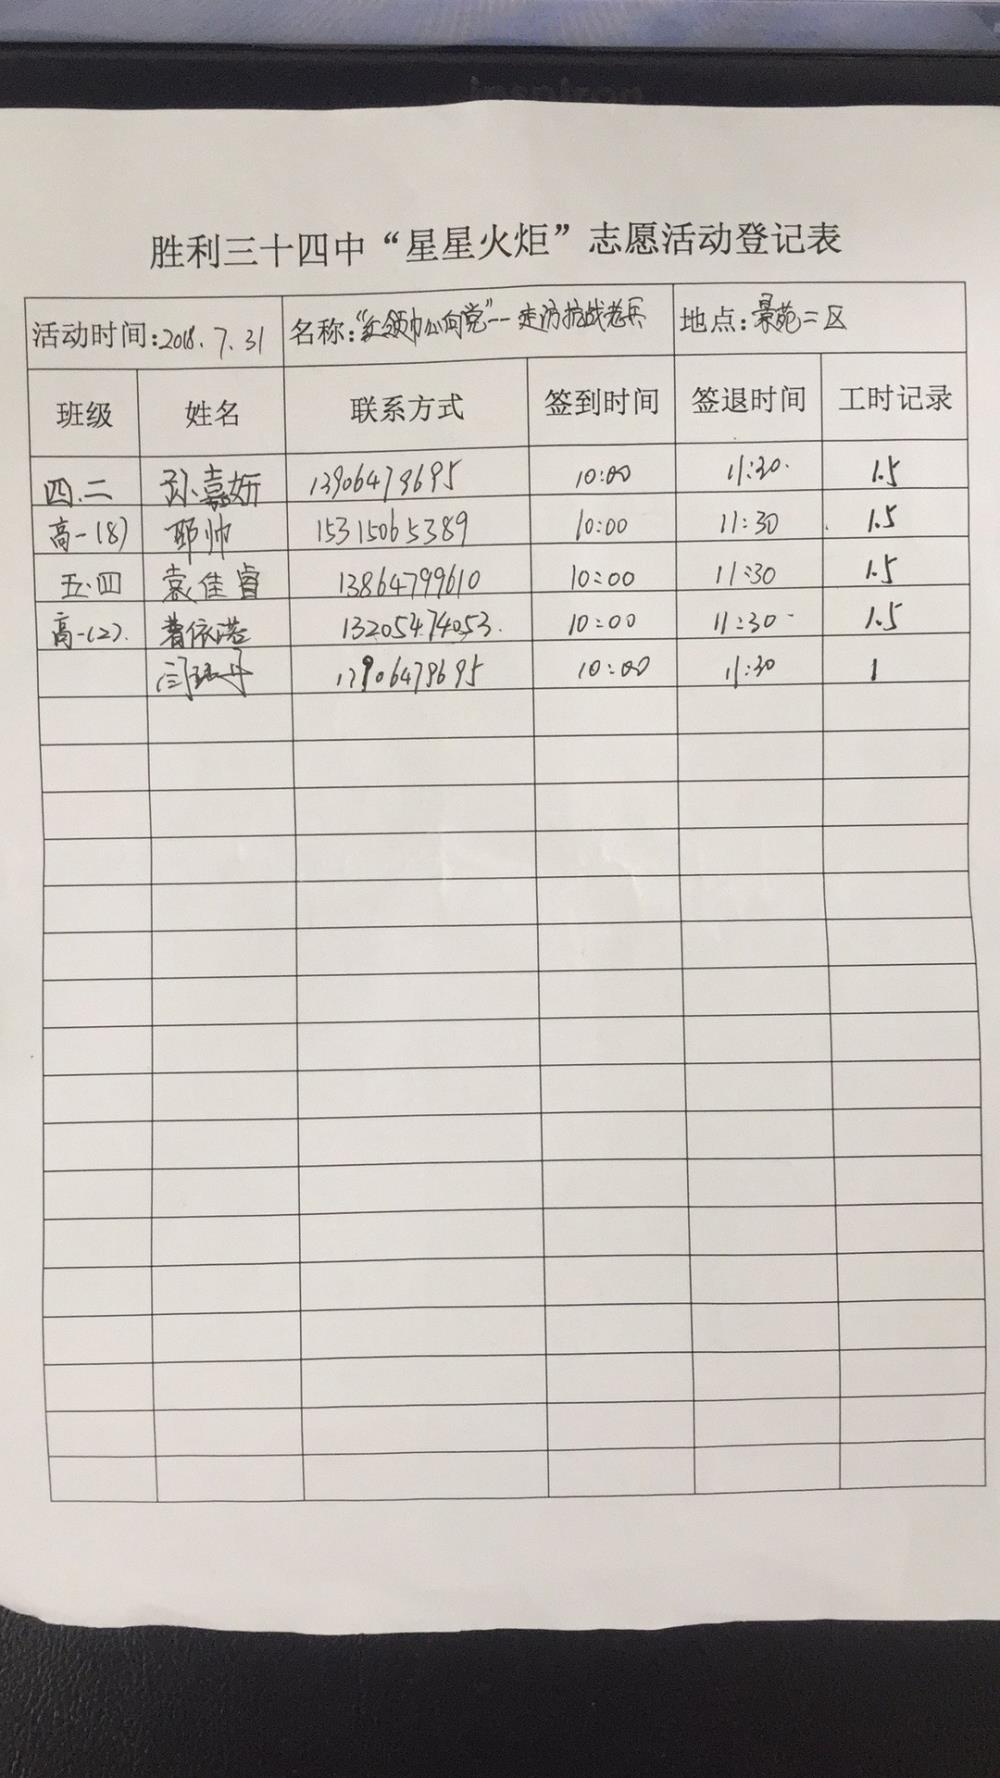 inspiron
胜利三十四中“星星火炬”志愿活动登记表
活动时间:2018.7.31 名称:“红领巾心向党”--走访抗战老兵 地点:景苑二区
班级 姓名 联系方式 签到时间 签退时间 工时记录
四.二 孙嘉妍 13906479695 10:00 11:30. 1.5
高一(8) 邢帅 15315065389 10:00 11:30 1.5
五.四 袁佳睿 13864799610 10:00 11:30 1.5
高一(2). 曹依诺 13205474053. 10:00 11:30 1.5
闫 13906479695 10:00 11:30 1